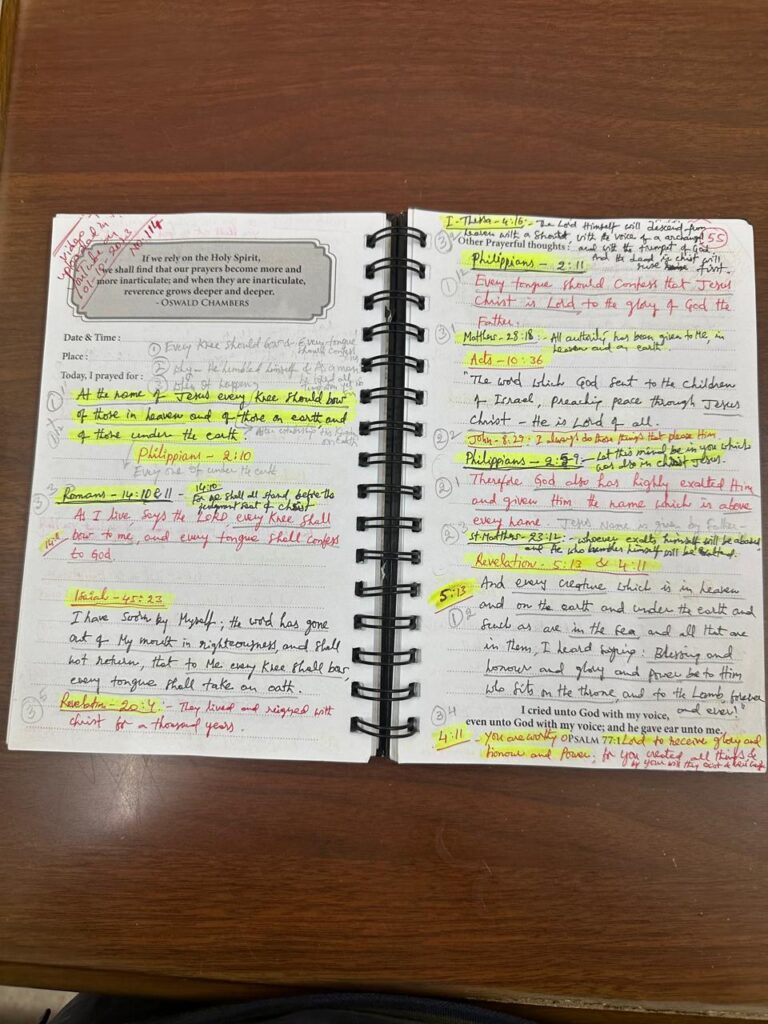 Video
uploaded in
Youtube on
2023
No: 114
If we rely on the Holy Spirit,
we shall find that our prayers become more and
more inarticulate; and when they are inarticulate,
reverence grows deeper and deeper.
- OSWALD CHAMBERS
Date & Time :
① Every Knee should bow & Every tongue
should confess
Place :
② Why - He humbled himself & As a man
Today, I prayed for :
③ When it happens
At the name of Jesus every Knee should bow
of those in heaven and of those on earth and
of those under the earth.
on Earth
Philippians - 2:10
Every one of under the earth
Romans - 14:10 & 11 -
14:10
For we shall all stand before the
judgment seat of Christ
14:11
As I live, says the LORD, every Knee shall
bow to me, and every tongue shall confess
to God.
Isaiah - 45:23
I have sworn by Myself; the word has gone
out of My mouth in righteousness, and shall
not return, that to Me every Knee shall bow,
every tongue shall take an oath.
Revelation - 20:4 - They lived and reigned with
christ for a thousand years.
55
I - Thessa - 4:16 - The Lord Himself will descend from
heaven with a Shout with the voice of a archangel
Other Prayerful thoughts : and with the trumpet of God.
And the dead in christ will
rise first.
Philippians - 2:11
Every tongue should confess that Jesus
Christ is Lord to the glory of God the
Father.
Matthew - 28:18 - All authority has been given to Me, in
heaven and on earth.
Acts - 10:36
"The word which God sent to the children
of Israel, preaching peace through Jesus
Christ - He is Lord of all.
John - 8:29 : I always do those things that please Him
Philippians - 2:5 - Let this mind be in you which
was also in Christ Jesus.
Therefore God also has highly exalted Him
and given Him the name which is above
every name. Jesus Name is given by Father -
St Matthew - 23:12 - whoever exalts himself will be abased,
and He who humbles himself will be exalted.
Revelation - 5:13 & 4:11
5:13
And every creature which is in heaven
and on the earth and under the earth and
such as are in the sea, and all that are
in them, I heard saying: Blessing and
honour and glory and power be to Him
who sits on the throne, and to the Lamb, forever
and ever!"
I cried unto God with my voice,
even unto God with my voice; and he gave ear unto me.
PSALM 77:1
4:11 - You are worthy O Lord to receive glory and
honour and Power; for you created all things &
by your will they exist &